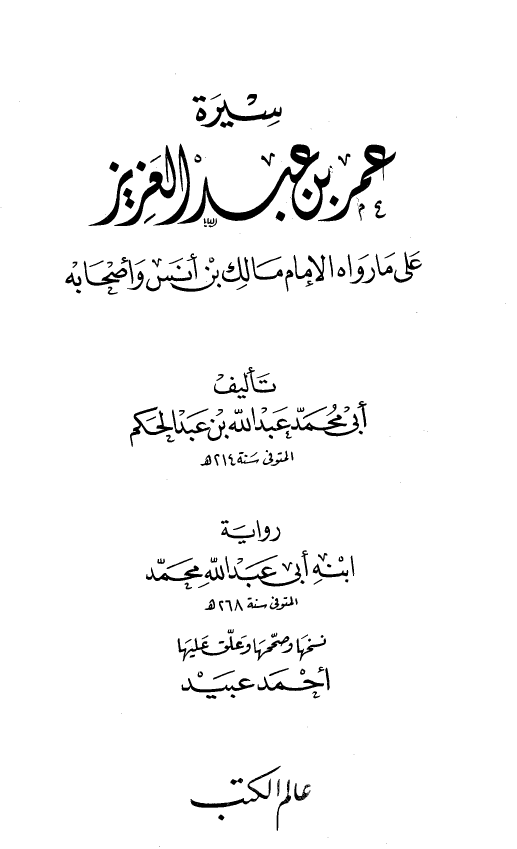 سيرة
عمر بن عبد العزيز
على ما رواه الإمام مالك بن أنس وأصحابه
تأليف
أبي محمد عبد الله بن عبد الحكم
المتوفى سنة ٢١٤ هـ
رواية
ابنه أبي عبد الله محمد
المتوفى سنة ٢٦٨ هـ
نسخها وصححها وعلق عليها
أحمد عبيد
عالم الكتب